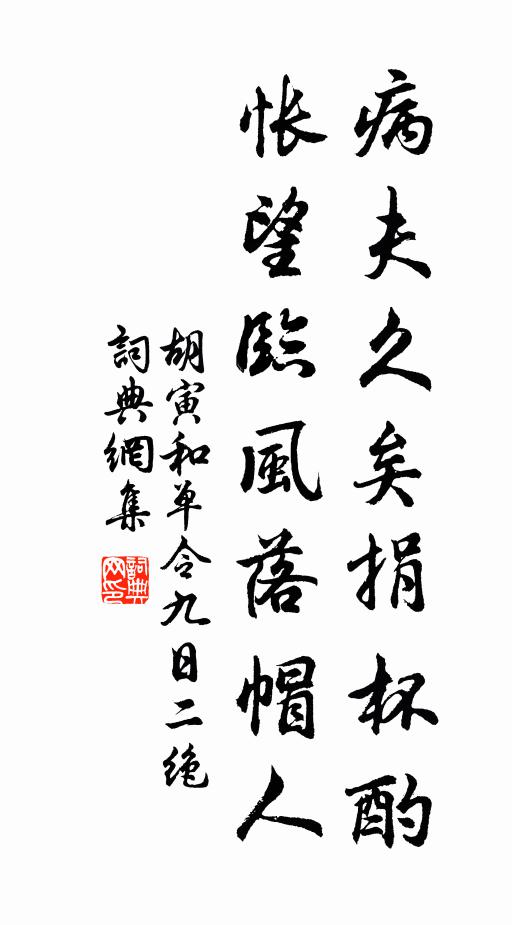 病夫久矣捐杯酌
悵望臨風落帽人
胡寅和单令九日二绝
詞典網集
詞典网印